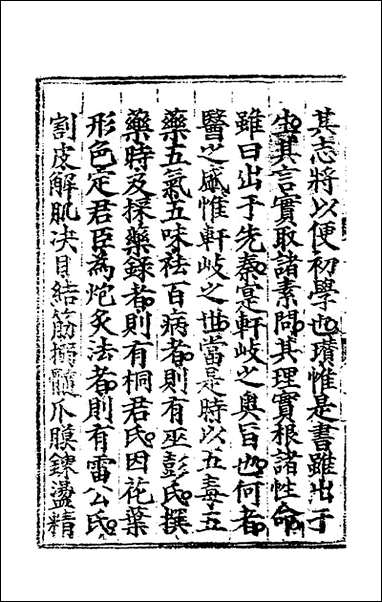 其志將以便初學也瓚惟是書雖出于
生其言實取諸素問其理實根諸性命
雖曰出于先秦寔軒岐之奥旨也何者
醫之盛惟軒岐之世當是時以五毒五
藥五氣五味袪百病者則有巫彭氏撰
藥時及採藥錄者則有桐君氏因花葉
形色定君臣為炮炙法者則有雷公氏
割皮解肌决目結筋搦髓爪膜錬盪精